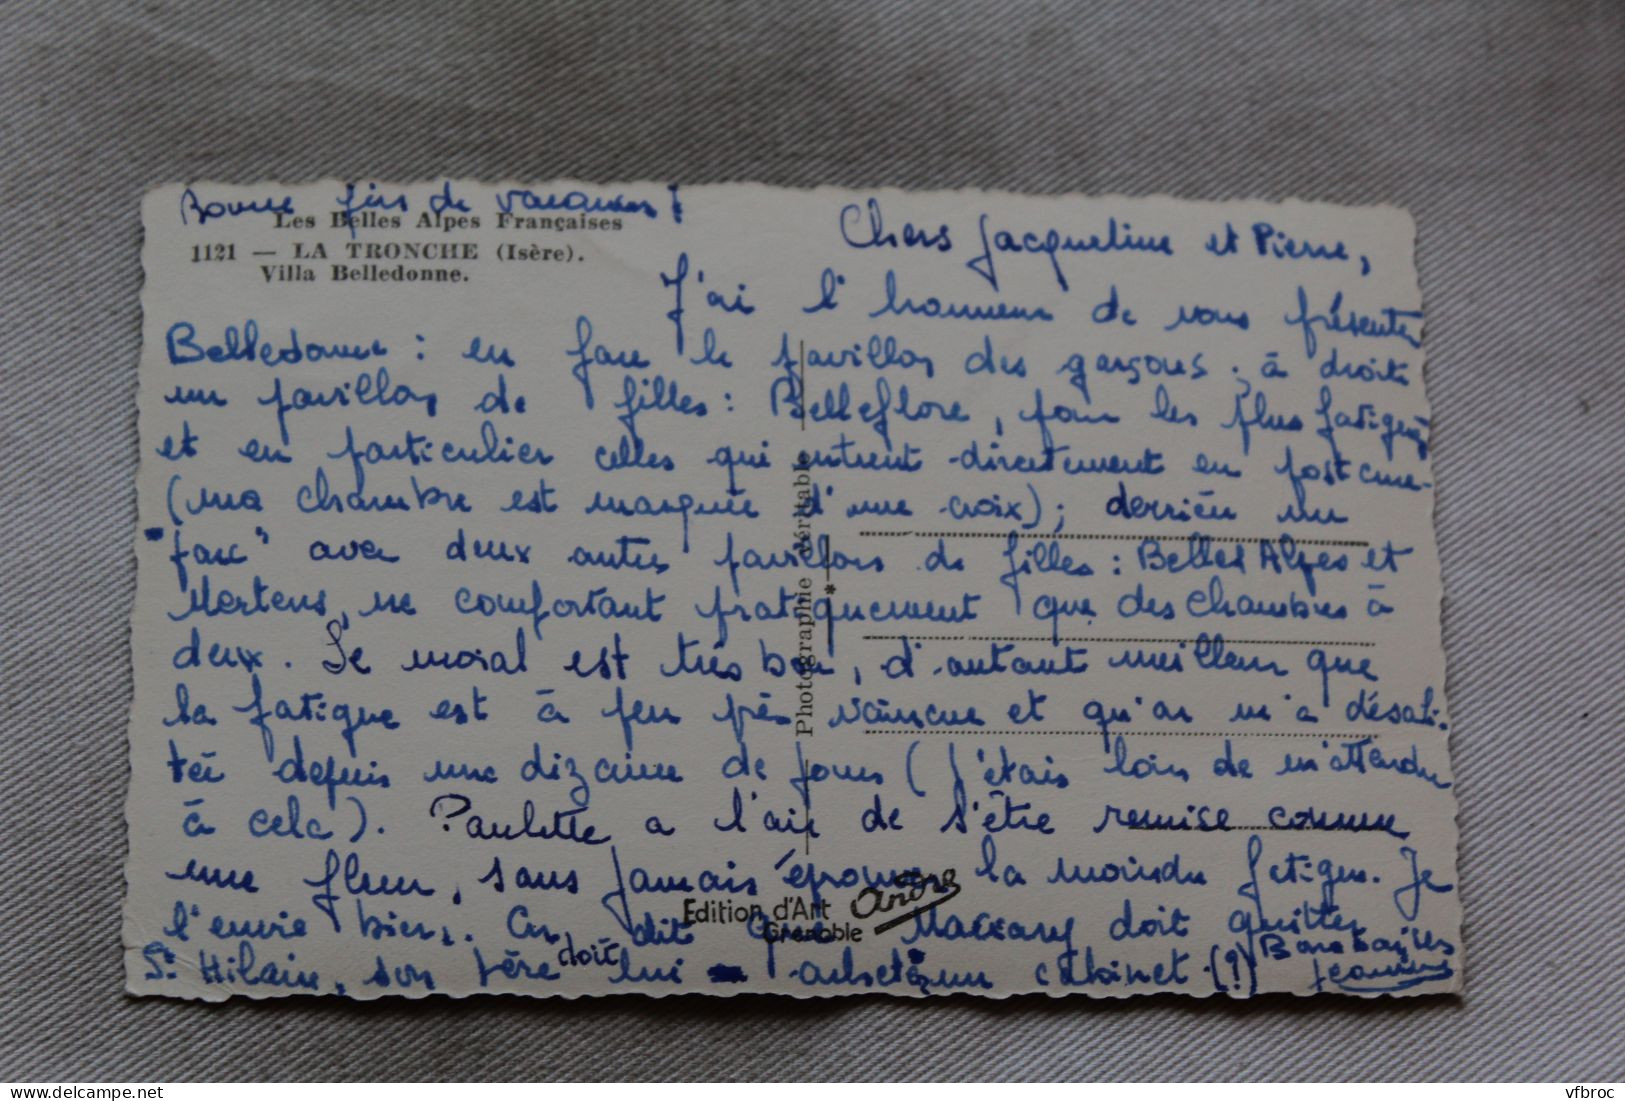 Bonne fin de vacances !
Les Belles Alpes Françaises
1121 — LA TRONCHE (Isère).
Villa Belledonne.
Chers Jacqueline et Pierre,
J'ai l'honneur de vous présenter
Belledonne : en face le pavillon des garçons ; à droite
un pavillon de filles : Belleflore, pour les plus fatiguées
et en particulier celles qui entrent directement en post cure
(ma chambre est marquée d'une croix) ; derrière un
"parc" avec deux autres pavillons de filles : Belles Alpes et
Mertens, ne comportant pratiquement que des chambres à
deux. Le moral est très bon, d'autant meilleur que
la fatigue est à peu près vaincue et qu'on m'a désali-
tée depuis une dizaine de jours (j'étais loin de m'attendre
à cela). Paulette a l'air de s'être remise comme
une fleur, sans jamais éprouver la moindre fatigue. Je
l'envie bien. On dit que doit quitter
St Hilaire, son père doit lui acheter un cabinet (!)
Bons baisers
Jeannine
Photographie véritable
Edition d'Art
André
Grenoble
vfbroc